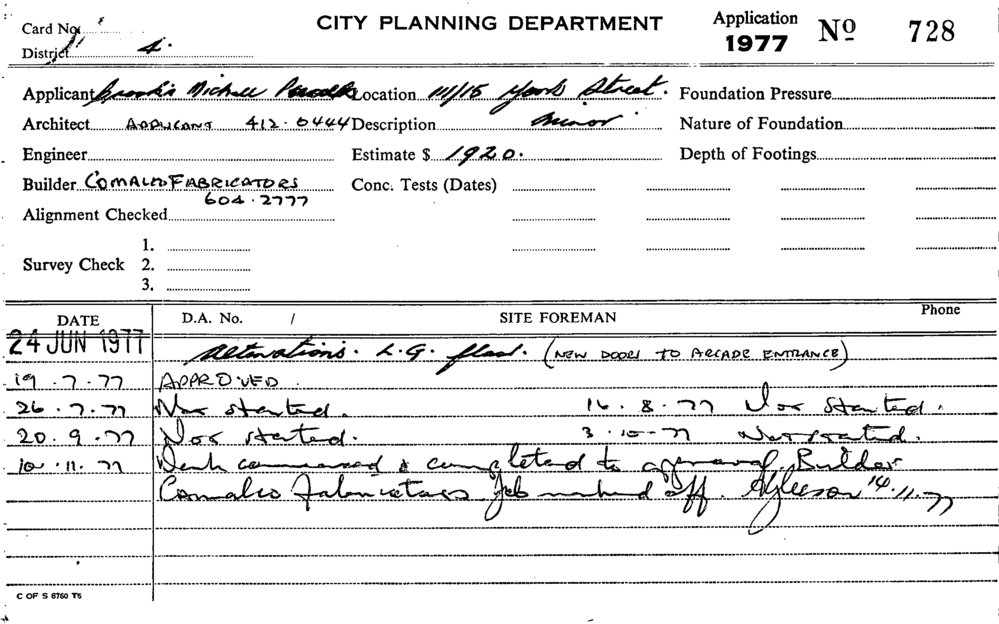 CITY PLANNING DEPARTMENT
Application 1977 Nº 728
Card No.
District 4.
Applicant Michell Location 111/15 York Street. Foundation Pressure
Architect APPLICANT 412.0444 Description Minor Nature of Foundation
Engineer Estimate $ 1920. Depth of Footings
Builder COMALCO FABRICATORS Conc. Tests (Dates)
604.2777
Alignment Checked
1.
Survey Check 2.
3.
DATE D.A. No. / SITE FOREMAN Phone
24 JUN 1977 Alterations. L.G. floor. (NEW DOORS TO ARCADE ENTRANCE)
19.7.77 APPROVED.
26.7.77 Not started. 16.8.77 Not started.
20.9.77 Not started. 3-10-77 Not started.
10.11.77 Work commenced & completed to approval. Builder
Comalco Fabricators. Job marked off. 14.11.77
C OF S 6760 T6